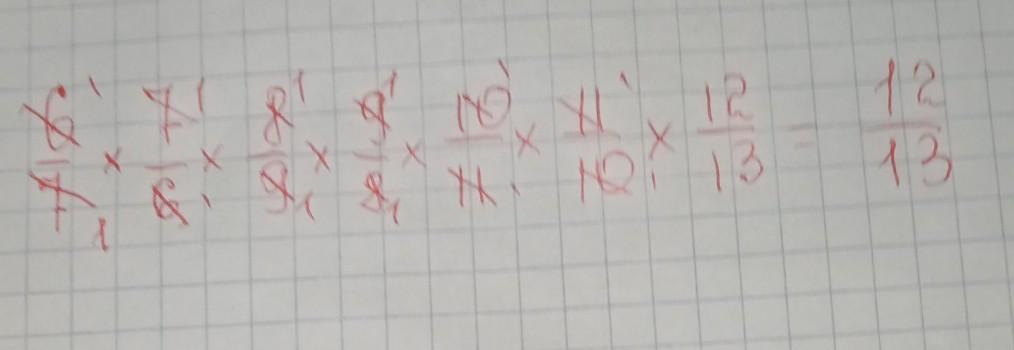 6/7 × 7/6 × 8/9 × 9/8 × 10/11 × 11/10 × 12/13 = 12/13